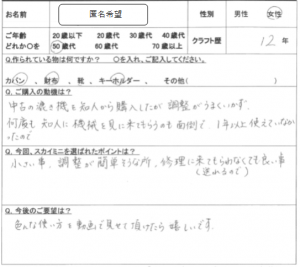 お名前 匿名希望 性別 男性 女性
ご年齢 20歳以下 20歳代 30歳代 40歳代 クラフト歴
どれか〇を 50歳代 60歳代 70歳以上 12年
Q.作られている物は何ですか? 〇を入れ、ご記入ください。
カバン、 財布、 靴、 キーホルダー、 その他( )
Q. ご購入の動機は?
中古の漉き機を知人から購入したが調整がうまくいかず、
何度も知人に機械を見に来てもらうのも面倒で、1年以上使えていなかっ
たので
Q. 今回、スカイミニを選ばれたポイントは?
小さい事、調整が簡単そうな所、修理に来てもらわなくても良い事
(送れるので)
Q. 今後のご要望は?
色んな使い方を動画で見せて頂けたら嬉しいです。